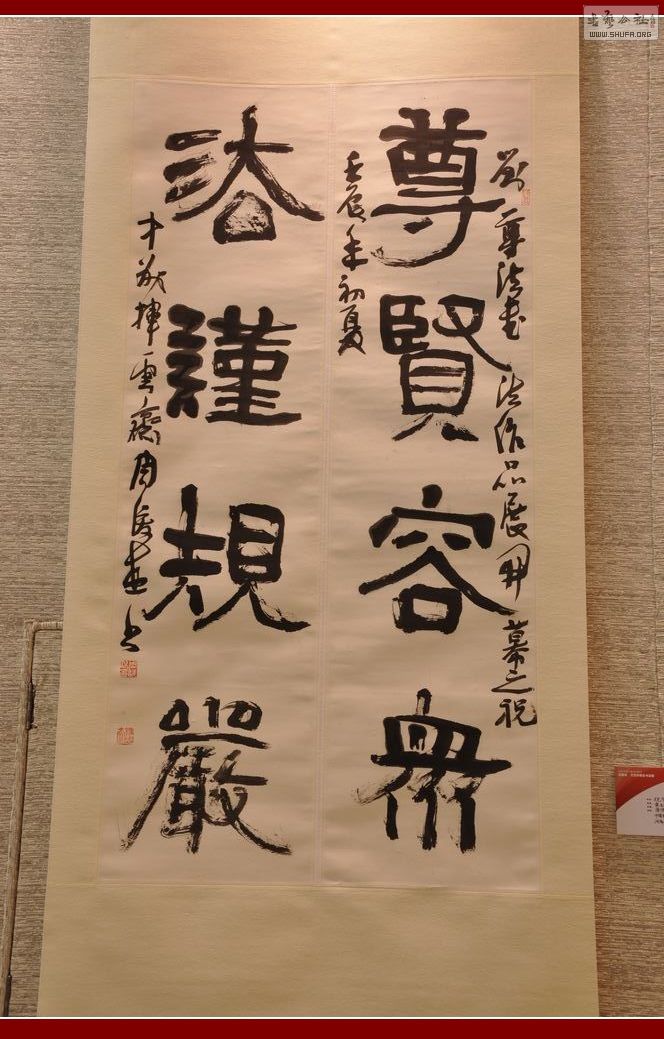 尊賢容衆
法謹規嚴
壬辰年初夏
尊法書 法作品展開幕之祝
揮雲齋周俊杰書
書艺公社
WWW.SHUFA.ORG